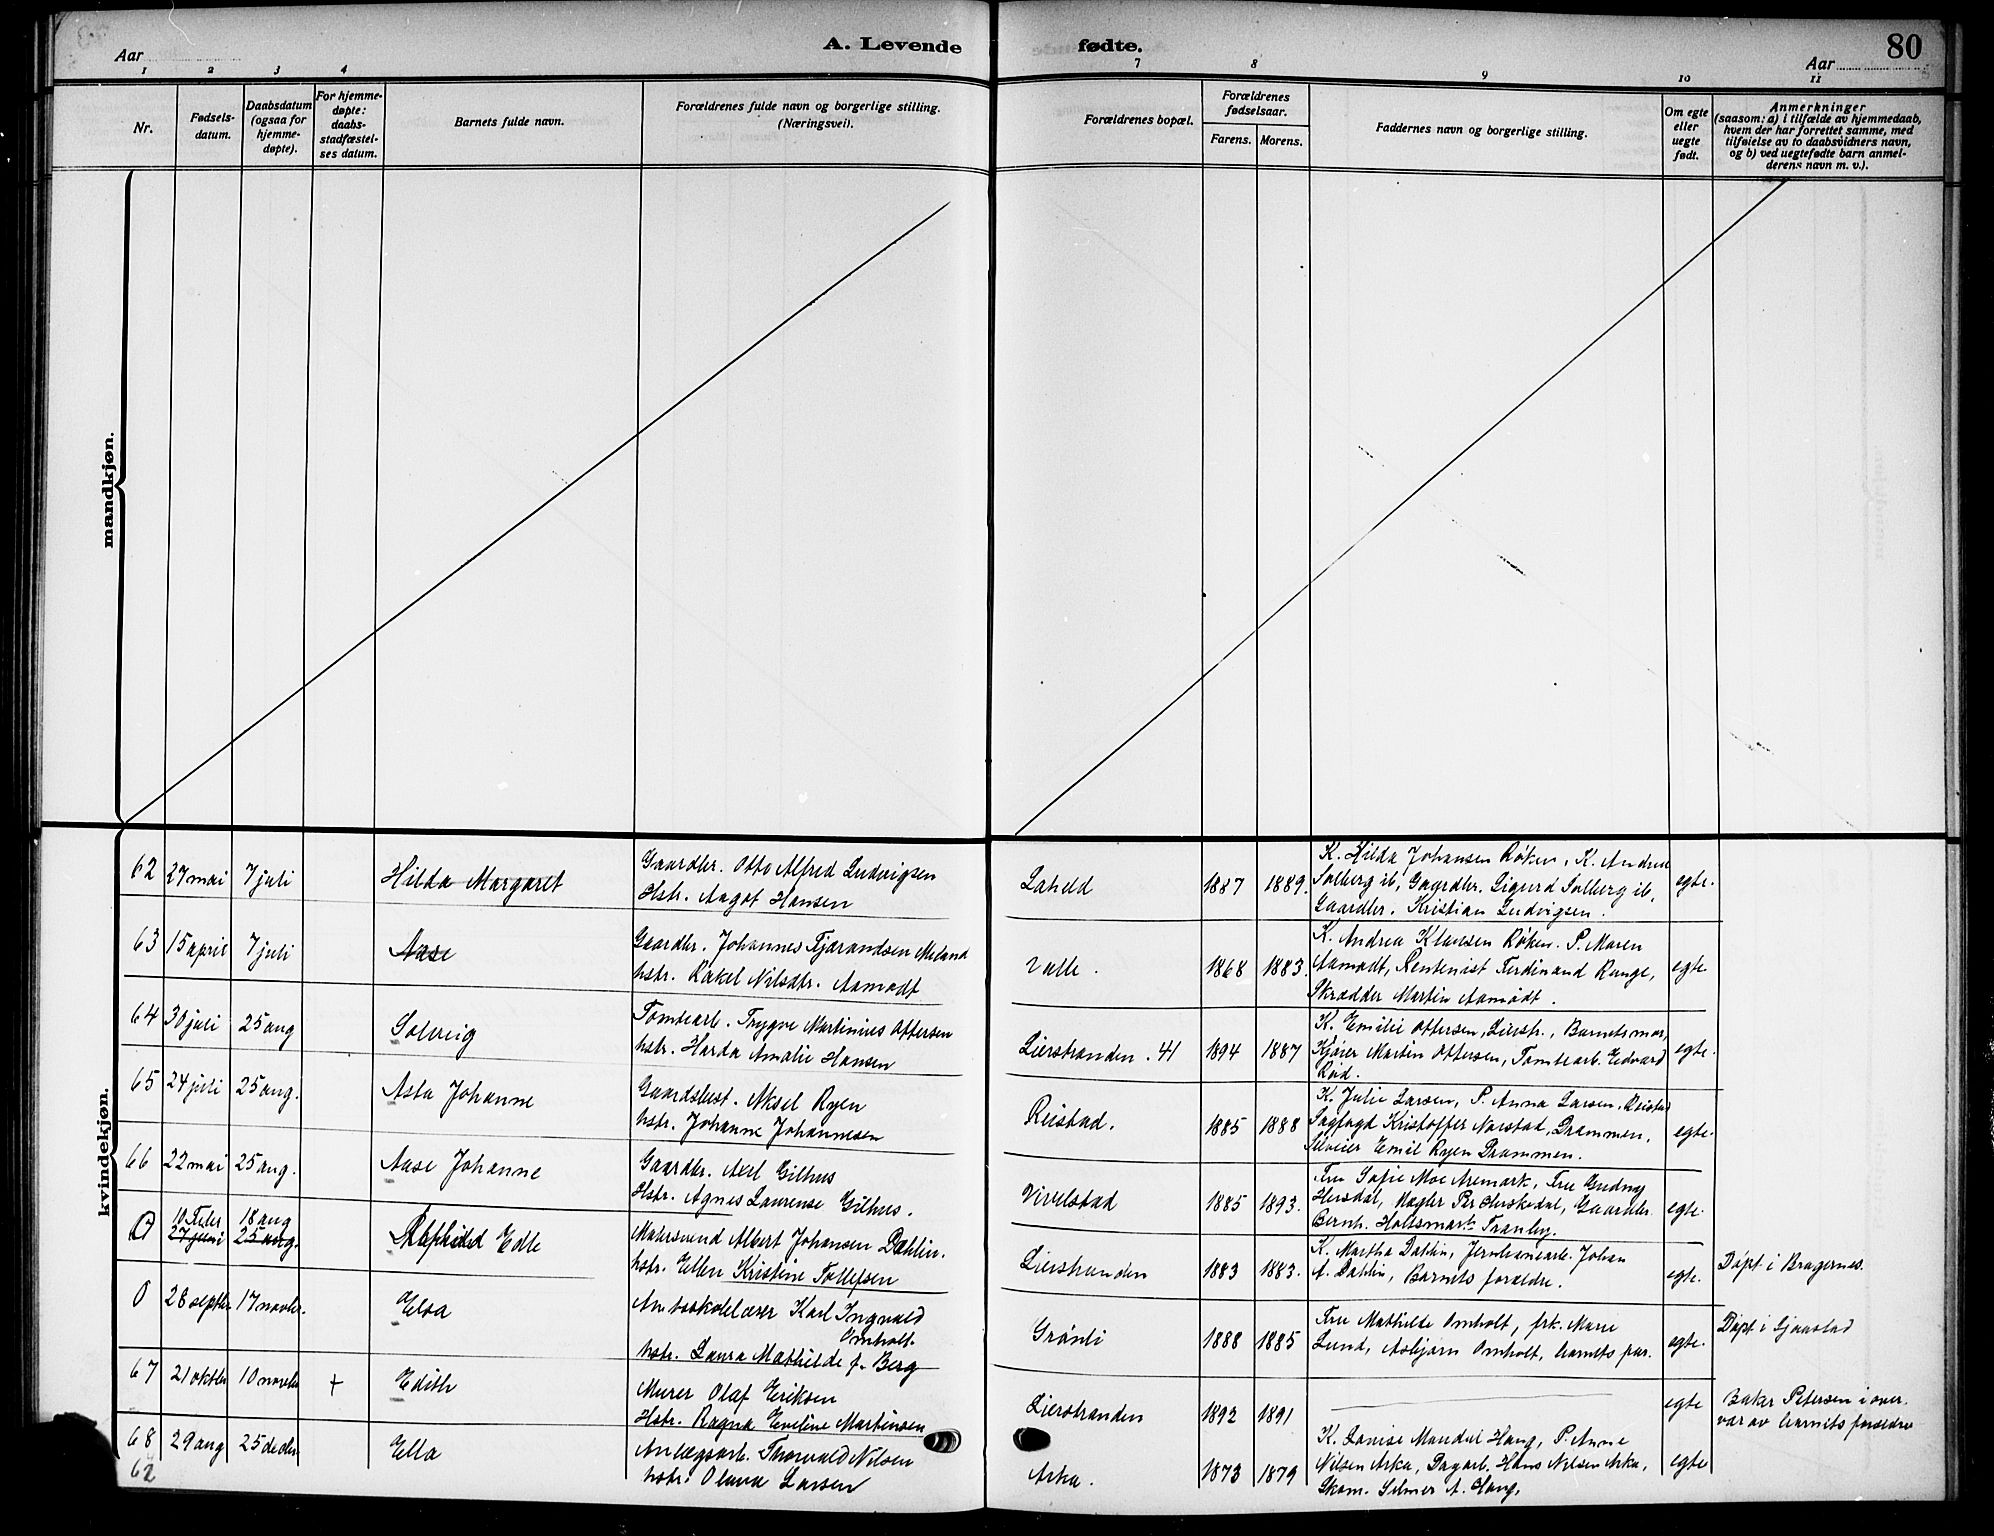 Aar
A. Levende
fødte.
80
Aar
1 2 3 4
7 8 9 10 11
Nr.
Fødsels-
datum.
Daabsdatum
(ogsaa for
hjemme-
døpte).
For hjemme-
døpte:
daabs-
stadfæstel-
ses datum.
Barnets fulde navn.
Forældrenes fulde navn og borgerlige stilling.
(Næringsvei).
Forældrenes bopæl.
Forældrenes
fødselsaar.
Farens. Morens.
Faddernes navn og borgerlige stilling.
Om egte
eller
uegte
født.
Anmerkninger
(saasom: a) i tilfælde av hjemmedaab,
hvem der har forrettet samme, med
tilføielse av to daabsvidners navn,
og b) ved uegtefødte barn anmel-
derens navn m. v.).
mandkjøn.
kvindekjøn.
62 27 mai 7 juli Hilda Margaret
Gaardbr. Otto Alfred Ludvigsen
Hstr. Aagot Hansen
Laheld 1887 1889.
K. Hilda Johansen Røken, K. Andrea
Solberg ib, Gaardbr. Sigurd Solberg ib,
Gaardbr. Kristian Ludvigsen.
egte.
63 15 april 7 juli Aase
Gaardbr. Johannes Tjærandsen Meland
hstr. Rakel Nilsdtr. Aamodt
Valle. 1868 1883.
K. Andrea Klausen Røken. P. Maren
Aamodt, Rentenist Ferdinand Runge,
Skrædder Martin Aamodt.
egte
64 30 juli 25 aug Solveig
Tomtearb. Trygve Martinius Ottersen
hstr. Harda Amalie Hansen
Lierstranden. 41 1894 1887
K. Emilie Ottersen, Lierstr., Barnets mor,
Kjører Martin Ottersen, Tomtearb. Edvard
Rød.
egte.
65 24 juli 25 aug. Asta Johanne
Gaardsbest. Aksel Ryen
hstr. Johanne Johannesen
Reistad. 1885 1888
K. Julie Larsen, P. Anna Larsen, Reistad
Sagfogd Kristoffer Norstad, Drammen,
Emil Ryen Drammen.
egte.
66 22 mai 25 aug. Aase Johanne
Gaardbr. Axel Gilhus
Hstr. Agnes Laurense Gilhus.
Vivelstad 1885 1893.
Fru Sofie Moe Aremark, Fru Gudny
Hersdal, Mægler Per Herskedal, Gaardbr.
Bernh. Holtsmark Tranby.
egte.
0 10 Febr 18 aug
27 juni 25 aug. Edle
Matersvend Albert Johansen Dahlin.
hstr. Ellen Kristine Tollefsen
Lierstranden 1883 1883.
K. Martha Dahlin, Jernbanearb. Johan
A. Dahlin, Barnets forældre.
egte. Døpt i Bragernes.
0 28 septbr 17 novbr. Elsa
Amtsskolelærer Karl Ingvald
Omholt.
hstr. Laura Mathilde f. Berg
Grønli 1888 1885
Fru Mathilde Omholt, frk. Marie
Lund, Asbjørn Omholt, barnets far.
egte. Døpt i Sjaastad
67 21 oktbr 10 novbr + Edith
Murer Olaf Eriksen
Hstr. Ragna Eveline Martinsen
Lierstranden 1892 1891
egte Baker Petersen i over.
vær av barnets forældre
68 29 aug 25 decbr Ella
Anlægsarb. Thorvald Nilsen
hstr. Olava Larsen
Arka. 1873 1879
K. Louise Mandal Haug, P. Anne
Nilsen Arka, Dagarb. Hans Nilsen Arka,
Skom. Selmer A. Haug,
egte
62